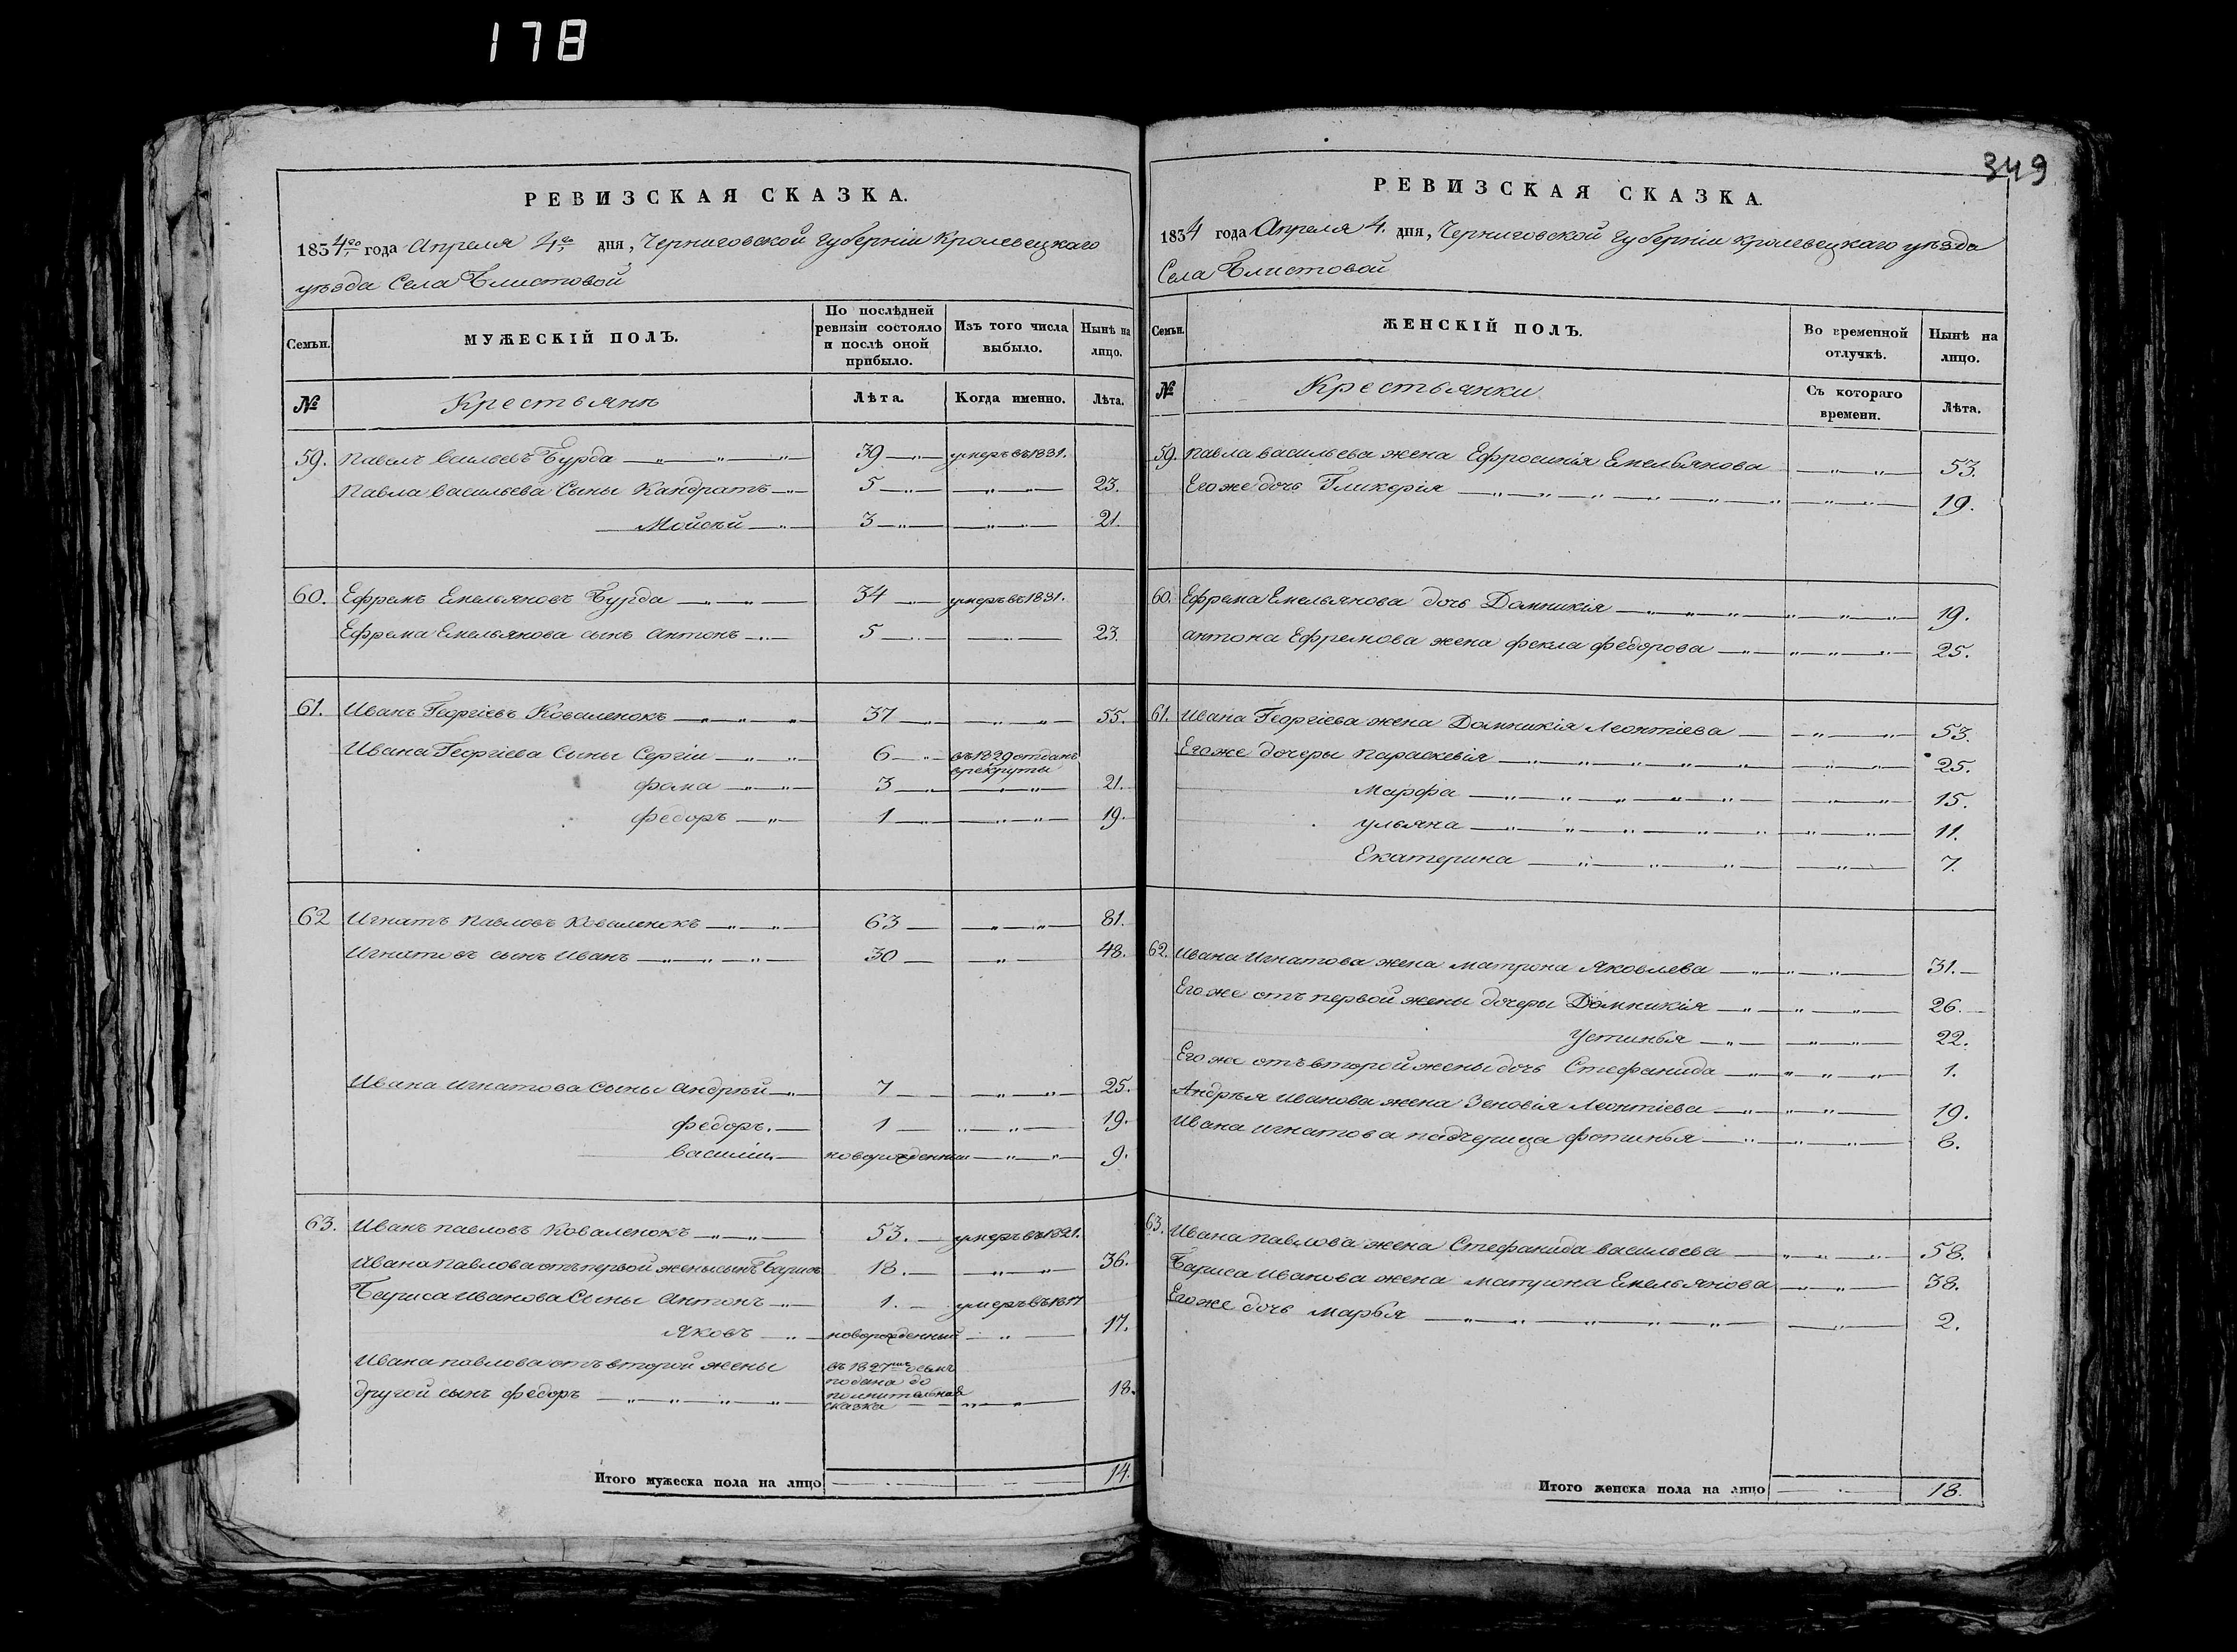 178
349
РЕВИЗСКАЯ СКАЗКА.
1834го года Апреля 4го дня, Черниговской Губерніи Кролевецкаго
уѣзда Села Блистовой
Семьи. МУЖЕСКІЙ ПОЛЪ. По послѣдней ревизіи состояло и послѣ оной прибыло. Изъ того числа выбыло. Нынѣ на лицо.
№ Крестьянъ Лѣта. Когда именно. Лѣта.
59. Павелъ Васильевъ Бурда 39 умеръ въ 1831.
Павла Васильева Сыны Кандратъ 5 23.
Мойсей 3 21.
60. Ефремъ Емельяновъ Бурда 34 умеръ въ 1831.
Ефрема Емельянова сынъ Антонъ 5 23.
61. Иванъ Георгіевъ Коваленокъ 37 55.
Ивана Георгіева Сыны Сергіи 6 въ 1829 отданъ
в рекруты
Фома 3 21.
Федоръ 1 19.
62 Игнатъ Павловъ Коваленокъ 63 81.
Игнатовъ сынъ Иванъ 30 48.
Ивана Игнатова Сыны Андрѣй 7 25.
Федоръ. 1 19.
Василіи новорожденныи 9.
63. Иванъ Павловъ Коваленокъ 53. умеръ въ 1821.
Ивана Павлова отъ первой жены сынъ Барисъ 18. 36.
Бариса Иванова Сыны Антонъ 1. умеръ въ 1817
Яковъ новорожденный 17.
Ивана Павлова отъ второй жены
другой сынъ Федоръ 18.
въ 1827мъ
подана до
полнительная
сказка
Итого мужеска пола на лицо 14.
РЕВИЗСКАЯ СКАЗКА.
1834 года Апреля 4. дня, Черниговской Губерніи Кролевецкаго уѣзда
Села Блистовой
Семьи. ЖЕНСКІЙ ПОЛЪ. Во временной отлучкѣ. Нынѣ на лицо.
№ Крестьянки Съ котораго времени. Лѣта.
59. Павла Васильева жена Ефросинія Емельянова 53.
Его же дочь Гликерія 19.
60. Ефрема Емельянова дочь Домникія 19.
Антона Ефремова жена Фекла Федорова 25.
61. Ивана Георгіева жена Домникія Леонтіева 53.
Его же дочеры Параскевія 25.
Марфа 15.
Ульяна 11.
Екатерина 7.
62. Ивана Игнатова жена Матрона Яковлева 31.
Его же отъ первой жены дочеры Домникія 26.
Устинья 22.
Его же отъ второй жены дочь Стефанида 1.
Андрѣя Иванова жена Зеновія Леонтіева 19.
Ивана Игнатова падчерица Фотинья 8.
63. Ивана Павлова жена Стефанида Васильева 58.
Бариса Иванова жена Матрона Емельянова 38.
Его же дочь Марья 2.
Итого женска пола на лицо 18.